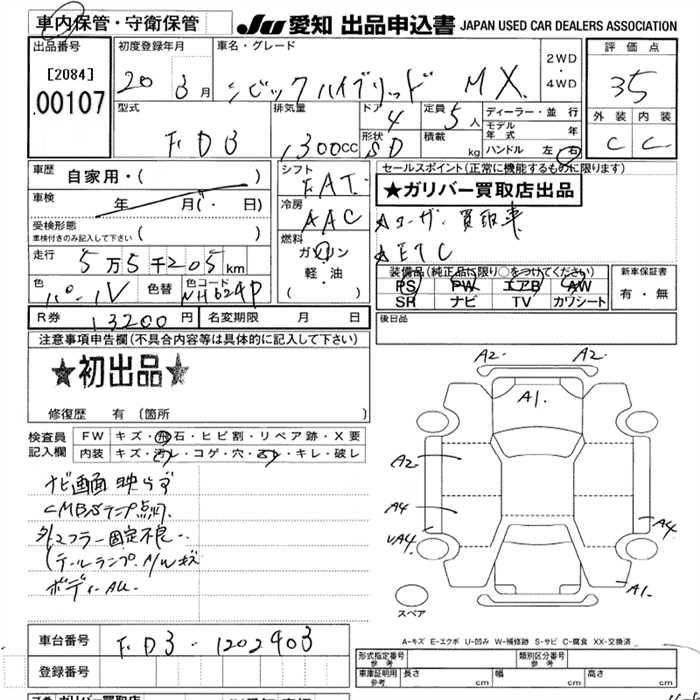 車内保管・守衛保管
JU 愛知 出品申込書 JAPAN USED CAR DEALERS ASSOCIATION
出品番号 初度登録年月 車名・グレード 2WD・4WD 評価点
[2084]
00107
20 3月 シビックハイブリッド MX 35
型式 排気量 ドア 4 定員 5人 ディーラー・並行 外装 内装
FD3 1300cc 形状 SD 積載 kg モデル年式 年
ハンドル 左 右 C C
車歴 自家用・( )
車検 年 月(・ 日)
受検形態
車検付きのみ記入して下さい ( )
走行 5万5千205km
色 パール 色替 色コード NH624P
シフト FAT
冷房 AAC
燃料 ガソリン
軽・油
( )
セールスポイント(正常に機能するものに限ります)
★ガリバー買取店出品
★ユーザー買取車
★ETC
装備品(純正品に限り○をつけてください) 新車保証書
PS PW エアB AW 有・無
SH ナビ TV カワシート
R券 13200円 名変期限 月 日
後日品
注意事項申告欄(不具合内容等は具体的に記入して下さい)
★初出品★
修復歴 有 (箇所 )
検査員記入欄
FW キズ・飛石・ヒビ割・リペア跡・X要
内装 キズ・汚レ・コゲ・穴・スレ・キレ・破レ
ナビ画面映らず
CMBSランプ点灯
外マフラー固定不良
テールランプ、M/Wキズ
A2 A2
A1
A2
A4 A4
A1
スペア
A-キズ E-エクボ U-凹み W-補修跡 S-サビ C-腐食 XX-交換済
車台番号 FD3-1202903
登録番号
形式指定番号 参考 類別区分番号 参考
車庫証明用 参考 長さ cm 幅 cm 高さ cm